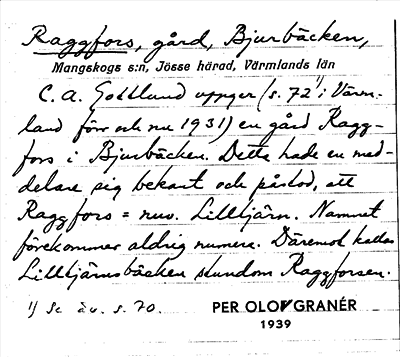 Raggfors, gård, Bjurbäcken,
Mangskogs s:n, Jösse härad, Värmlands län
C. A. Gottlund uppger (s. 72¹⁾ i Värm-
land förr och nu 1931) en gård Ragg-
fors i Bjurbäcken. Detta hade en med-
delare sig bekant och påstod, att
Raggfors = nuv. Lilltjärn. Namnet
förekommer aldrig numera. Däremot kallas
Lilltjärnsbäcken stundom Raggforsen.
1) Se äv. s. 70.
PER OLOF GRANÉR
1939